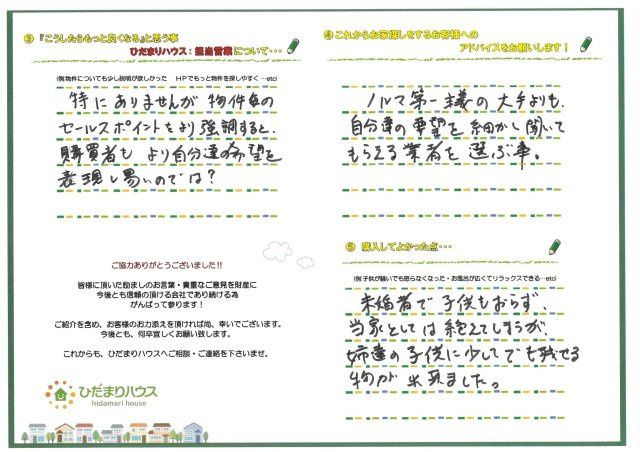 ③『こうしたらもっと良くなる』と思う事
ひだまりハウス：担当営業について・・・
(例:物件についても少し説明が欲しかった　HPでもっと物件を探しやすく…etc)
特にありませんが物件毎の
セールスポイントをより強調すると、
購買者も より自分達の希望を
表現し易いのでは?
ご協力ありがとうございました!!
皆様に頂いた励ましのお言葉・貴重なご意見を財産に
今後とも信頼の頂ける会社であり続ける為
がんばって参ります！
ご紹介を含め、お客様のお力添えを頂ければ尚、幸いでございます。
今後とも、何卒宜しくお願い致します。
これからも、ひだまりハウスへご相談・ご連絡を下さいませ。
ひだまりハウス
hidamari house
④これからお家探しをするお客様への
アドバイスをお願いします！
ノルマ第一主義の大手よりも、
自分達の要望を細かく聞いて
もらえる業者を選ぶ事。
⑤ 購入してよかった点・・・
(例:子供が騒いでも怒らなくなった・お風呂が広くてリラックスできる…etc)
未婚者で子供もおらず、
当家としては絶えてしまうが、
姉達の子供に少しでも残せる
物が出来ました。